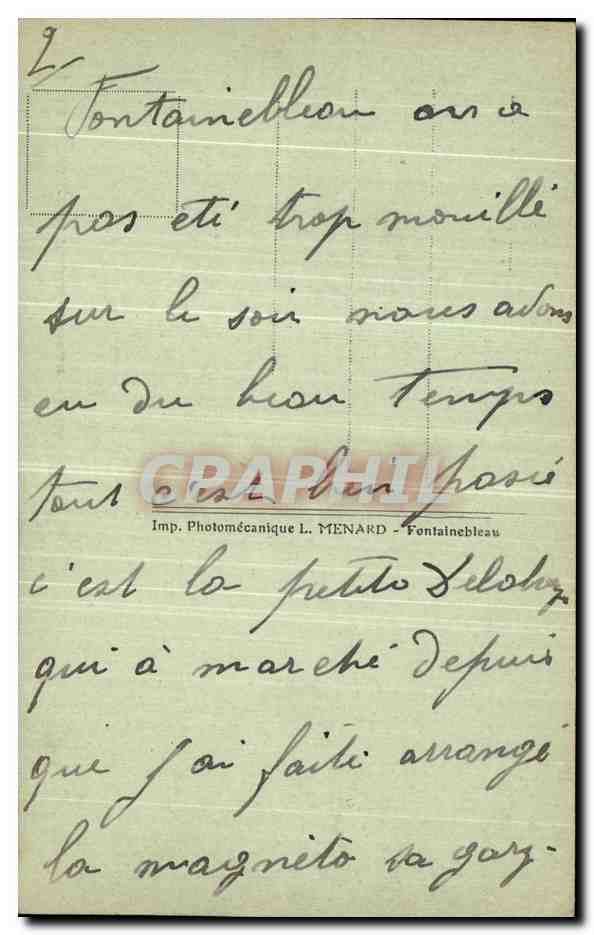 2/
Fontainebleau on a
pas eté trop mouillé
sur le soir nous avons
eu du beau temps
tout c'est bien passé
CPARHIL
Imp. Photomécanique L. MENARD - Fontainebleau
c'est la petite Delahay
qui à marché depuis
que j'ai faite arrangé
la magnéto sa gaz-